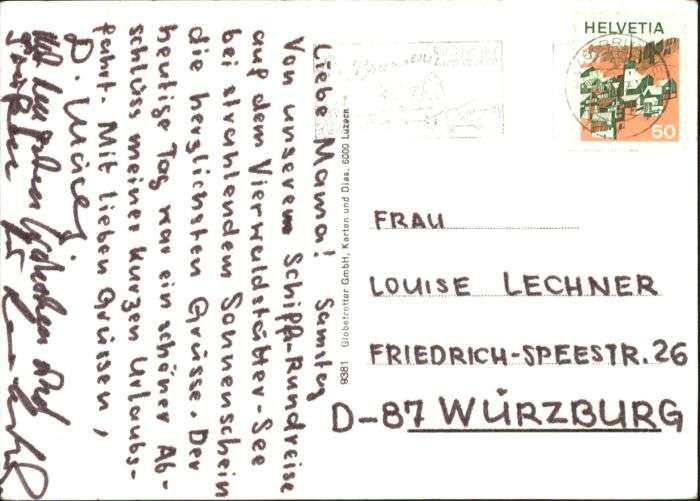 Liebe Mama! Samstag
Von unserem Schiffs-Rundreise
auf dem Vierwaldstätter-See
bei strahlendem Sonnenschein
die herzlichsten Grüsse. Der
heutige Tag war ein schöner Ab-
schluss meiner kurzen Urlaubs-
fahrt. Mit lieben Grüssen,
9381 Globetrotter GmbH, Karten und Dias, 6000 Luzern
HELVETIA
50
FRAU
LOUISE LECHNER
FRIEDRICH-SPEESTR. 26
D-87 WÜRZBURG